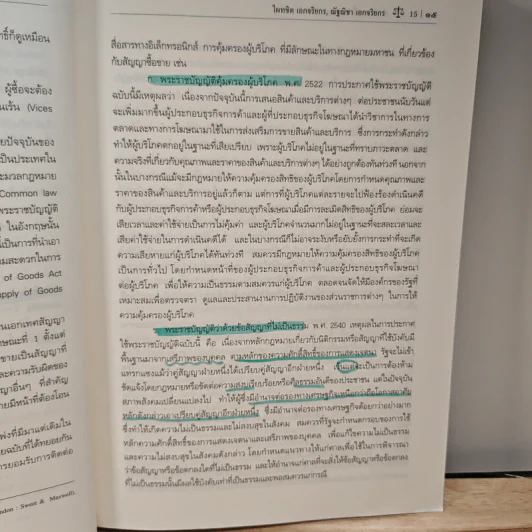 ไผทชิต เอกจริยกร, ณัฐณิชา เอกจริยกร 15 | ๑๕
สื่อสารทางอิเล็กทรอนิกส์ การคุ้มครองผู้บริโภค ที่มีลักษณะในทางกฎหมายมหาชน ที่เกี่ยวข้อง
กับสัญญาซื้อขาย เช่น
ก. พระราชบัญญัติคุ้มครองผู้บริโภค พ.ศ. 2522 การประกาศใช้พระราชบัญญัติ
ฉบับนี้มีเหตุผลว่า เนื่องจากปัจจุบันนี้การเสนอสินค้าและบริการต่างๆ ต่อประชาชนนับวันแต่
จะเพิ่มมากขึ้นผู้ประกอบธุรกิจการค้าและผู้ที่ประกอบธุรกิจโฆษณาได้นำวิชาการในทางการ
ตลาดและทางการโฆษณามาใช้ในการส่งเสริมการขายสินค้าและบริการ ซึ่งการกระทำดังกล่าว
ทำให้ผู้บริโภคตกอยู่ในฐานะที่เสียเปรียบ เพราะผู้บริโภคไม่อยู่ในฐานะที่ทราบภาวะตลาด และ
ความจริงที่เกี่ยวกับคุณภาพและราคาของสินค้าและบริการต่างๆ ได้อย่างถูกต้องทันท่วงที นอกจาก
นั้นในบางกรณีแม้จะมีกฎหมายให้ความคุ้มครองสิทธิของผู้บริโภคโดยการกำหนดคุณภาพและ
ราคาของสินค้าและบริการอยู่แล้วก็ตาม แต่การที่ผู้บริโภคแต่ละรายจะไปฟ้องร้องดำเนินคดี
กับผู้ประกอบธุรกิจการค้าหรือผู้ประกอบธุรกิจโฆษณาเมื่อมีการละเมิดสิทธิของผู้บริโภค ย่อมจะ
เสียเวลาและค่าใช้จ่ายเป็นการไม่คุ้มค่า และผู้บริโภคจำนวนมากไม่อยู่ในฐานะที่จะสละเวลาและ
เสียค่าใช้จ่ายในการดำเนินคดีได้ และในบางกรณีก็ไม่อาจระงับหรือยับยั้งการกระทำที่จะเกิด
ความเสียหายแก่ผู้บริโภคได้ทันท่วงที สมควรมีกฎหมายให้ความคุ้มครองสิทธิของผู้บริโภค
เป็นการทั่วไป โดยกำหนดหน้าที่ของผู้ประกอบธุรกิจการค้าและผู้ประกอบธุรกิจโฆษณา
ต่อผู้บริโภค เพื่อให้ความเป็นธรรมตามสมควรแก่ผู้บริโภค ตลอดจนจัดให้มีองค์กรของรัฐที่
เหมาะสมเพื่อตรวจตรา ดูแลและประสานงานการปฏิบัติงานของส่วนราชการต่างๆ ในการให้
ความคุ้มครองผู้บริโภค
ข. พระราชบัญญัติว่าด้วยข้อสัญญาที่ไม่เป็นธรรม พ.ศ. 2540 เหตุผลในการประกาศ
ใช้พระราชบัญญัติฉบับนี้ คือ เนื่องจากหลักกฎหมายเกี่ยวกับนิติกรรมหรือสัญญาที่ใช้บังคับมี
พื้นฐานมาจากเสรีภาพของบุคคล ตามหลักของความศักดิ์สิทธิ์ของการแสดงเจตนา รัฐจะไม่เข้า
แทรกแซงแม้ว่าคู่สัญญาฝ่ายหนึ่งได้เปรียบคู่สัญญาอีกฝ่ายหนึ่ง เว้นแต่จะเป็นการต้องห้าม
ชัดแจ้งโดยกฎหมายหรือขัดต่อความสงบเรียบร้อยหรือศีลธรรมอันดีของประชาชน แต่ในปัจจุบัน
สภาพสังคมเปลี่ยนแปลงไป ทำให้ผู้ซึ่งมีอำนาจต่อรองทางเศรษฐกิจเหนือกว่าถือโอกาสอาศัย
หลักดังกล่าวเอาเปรียบคู่สัญญาอีกฝ่ายหนึ่ง ซึ่งมีอำนาจต่อรองทางเศรษฐกิจด้อยกว่าอย่างมาก
ซึ่งทำให้เกิดความไม่เป็นธรรมและไม่สงบสุขในสังคม สมควรที่รัฐจะกำหนดกรอบของการใช้
หลักความศักดิ์สิทธิ์ของการแสดงเจตนาและเสรีภาพของบุคคล เพื่อแก้ไขความไม่เป็นธรรม
และความไม่สงบสุขในสังคมดังกล่าว โดยกำหนดแนวทางให้แก่ศาลเพื่อใช้ในการพิจารณา
ว่าข้อสัญญาหรือข้อตกลงใดที่ไม่เป็นธรรม และให้อำนาจแก่ศาลที่จะสั่งให้ข้อสัญญาหรือข้อตกลง
ที่ไม่เป็นธรรมนั้นมีผลใช้บังคับเท่าที่เป็นธรรมและพอสมควรแก่กรณี
ผู้ซื้อจะต้อง
(Vices
ปัจจุบันของ
เป็นประเทศใน
Common law
ในอังกฤษนั้น
of Goods Act
Supply of Goods